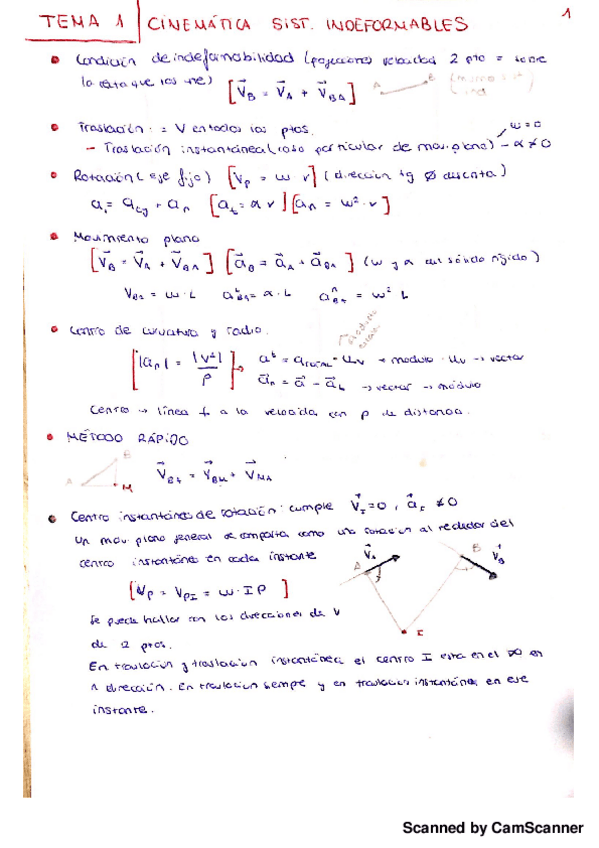 TEMA 1 | CINEMÁTICA SIST. INDEFORMABLES 1
• Condición de indeformabilidad (proyecciones velocidad 2 pto = sobre
la recta que los une) [V⃗B = V⃗A + V⃗BA] A B
• Traslación: = V en todos los ptos. w=0
– Traslación instantánea (caso particular de mov. plano) – α≠0
• Rotación (eje fijo) [Vp = w r] (dirección tg
[at = α r] [an = w² · r]
• Movimiento plano
[V⃗B = V⃗A + V⃗BA] [a⃗B = a⃗A + a⃗BA] (w y α del sólido rígido)
VBA = w · L aᵗBA = α · L aⁿBA = w² L
• Centro de curvatura y radio.
[|an| = |V²| / ρ] → módulo · Uv → vector
a⃗n = a⃗ – a⃗t → vector → módulo
Centro → línea ⊥ a la velocidad con ρ de distancia.
• MÉTODO RÁPIDO
A B M V⃗BA = V⃗BM + V⃗MA
• Centro instantáneo de rotación: cumple V⃗I = 0, a⃗I ≠ 0
Un mov. plano general se comporta como una rotación alrededor del
centro instantáneo en cada instante
A V⃗A B V⃗B
[Vp = VPI = w · IP]
I
Se puede hallar con las direcciones de V
de 2 ptos.
En traslación y traslación instantánea el centro I está en el ∞ en
⊥ dirección. En traslación siempre y en traslación instantánea en ese
instante.
Scanned by CamScanner